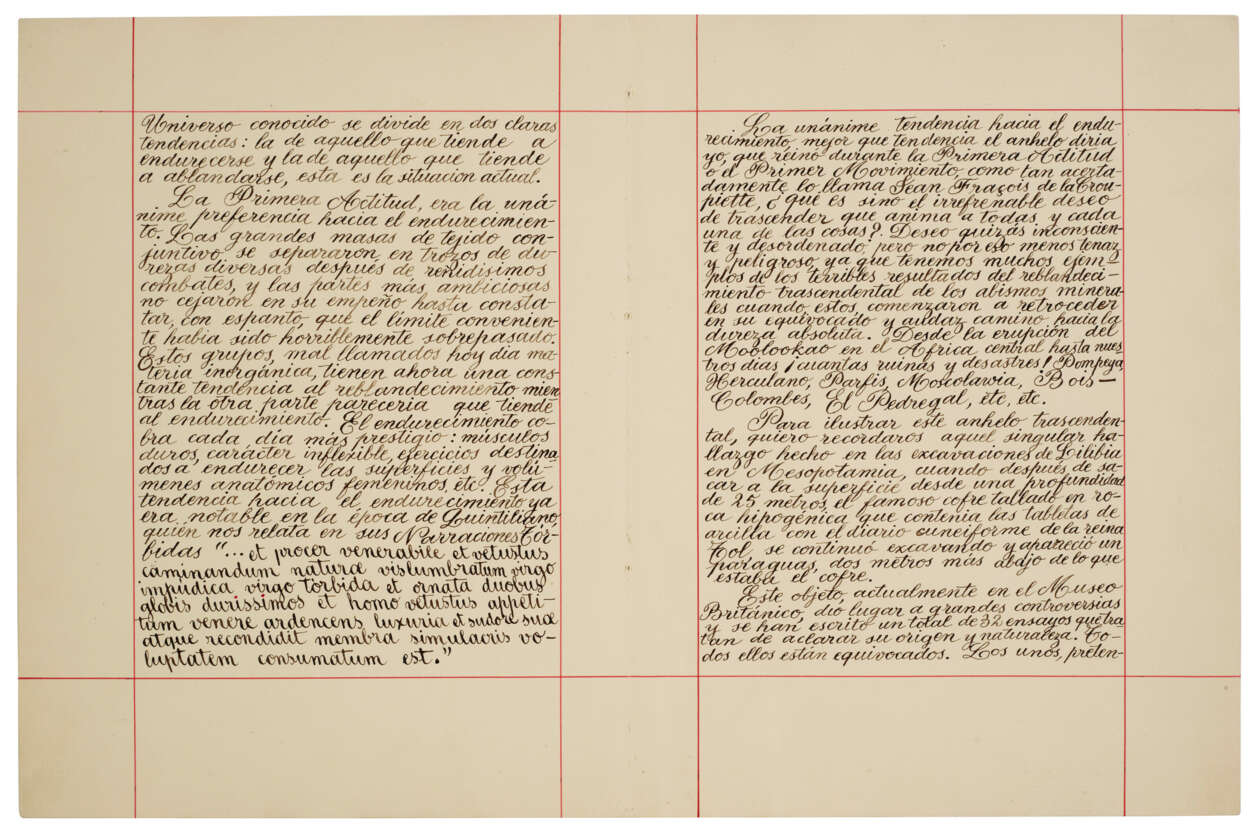 Universo conocido se divide en dos claras
tendencias: la de aquello que tiende a
endurecerse y la de aquello que tiende
a ablandarse, esta es la situacion actual.
La Primera Actitud, era la uná-
nime preferencia hacia el endurecimien-
to. Las grandes masas de tejido con-
juntivo se separaron en trozos de du-
rezas diversas después de reñidísimos
combates, y las partes más ambiciosas
no cejaron en su empeño hasta consta-
tar, con espanto, que el límite convenien-
te habia sido horriblemente sobrepasado.
Estos grupos, mal llamados hoy dia ma-
teria inorgánica, tienen ahora una cons-
tante tendencia al reblandecimiento mien
tras la otra parte pareceria que tiende
al endurecimiento. El endurecimiento co-
bra cada dia más prestigio: músculos
duros, carácter inflexible, ejercicios destina
dos a endurecer las superficies y volú-
menes anatómicos femeninos, etc. Esta
tendencia hacia el endurecimiento ya
era notable en la época de Quintiliano,
quien nos relata en sus Narraciones Tór-
bidas "... et procer venerabile et vetustus
caminandum naturæ vislumbratum virgo
impudica virgo torbida et ornata duobus
globis durissimos et homo vetustus appeti-
tum venere ardencens luxuria et sudore suæ
atque recondidit membra simulacris vo-
luptatem consumatum est."
La unánime tendencia hacia el endu-
recimiento mejor que tendencia el anhelo diria
yo, que reinó durante la Primera Actitud
o el Primer Movimiento, como tan acerta-
damente lo llama Jean Fraçois de la Crou-
piette, ¿ qué es sino el irrefrenable deseo
de trascender que anima a todas y cada
una de las cosas?. Deseo quizás inconscien-
te y desordenado, pero no por eso menos tenaz
y peligroso, ya que tenemos muchos ejem-
plos de los terribles resultados del reblandeci-
miento trascendental de los abismos minera-
les cuando, estos, comenzaron a retroceder
en su equivocado y audaz camino hacia la
dureza absoluta. Desde la erupción del
Moolookao en el Africa central hasta nues-
tros dias ¡ cuantas ruinas y desastres! Pompeya,
Herculano, Parfis, Moscolawia, Bois-
Colombes, El Pedregal, etc, etc.
Para ilustrar este anhelo trascenden-
tal, quiero recordaros aquel singular ha-
llazgo hecho en las excavaciones de Lilibia
en Mesopotamia, cuando después de sa-
car a la superficie, desde una profundidad
de 25 metros, el famoso cofre tallado en ro-
ca hipogénica que contenia las tabletas de
arcilla con el diario cuneiforme de la reina
Tol, se continuó excavando y apareció un
paraguas, dos metros más abajo de lo que
estaba el cofre.
Este objeto, actualmente en el Museo
Británico, dió lugar a grandes controversias
y se han escrito un total de 32 ensayos que tra
tan de aclarar su origen y naturaleza. To-
dos ellos están equivocados. Los unos, preten-